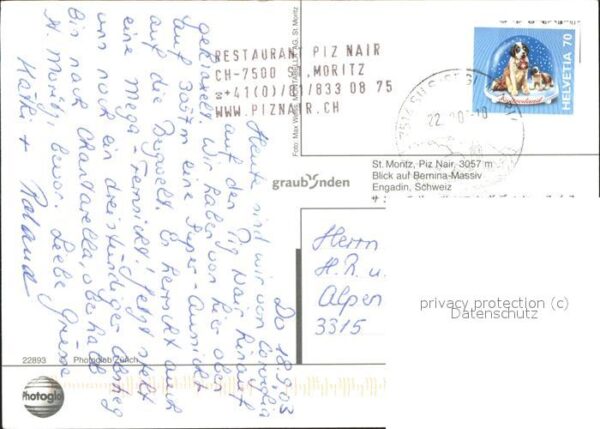 Do 18.9.03
Heute sind wir von Corviglia
auf den Piz Nair hinauf
gekraxelt. Wir haben von hier oben
auf 3057m eine Super-Aussicht
auf die Bergwelt. Es herrscht auch
eine Mega-Fernsicht! Jetzt steht
uns noch ein dreistündiger Abstieg
bis nach Chantarella, oberhalb
St. Moritz, bevor. Liebe Grüsse
Käthi + Roland
RESTAURANT PIZ NAIR
CH-7500 ST.MORITZ
+41(0)/81/833 08 75
WWW.PIZNAIR.CH
HELVETIA 70
22
Foto: Max Weiss, MONTABELLA AG, St. Moritz
St. Moritz, Piz Nair, 3057 m
Blick auf Bernina-Massiv
Engadin, Schweiz
graubünden
Herrn
H.R. u.
Alpen
3315
privacy protection (c)
Datenschutz
22893 Photoglob Zürich
Photoglob